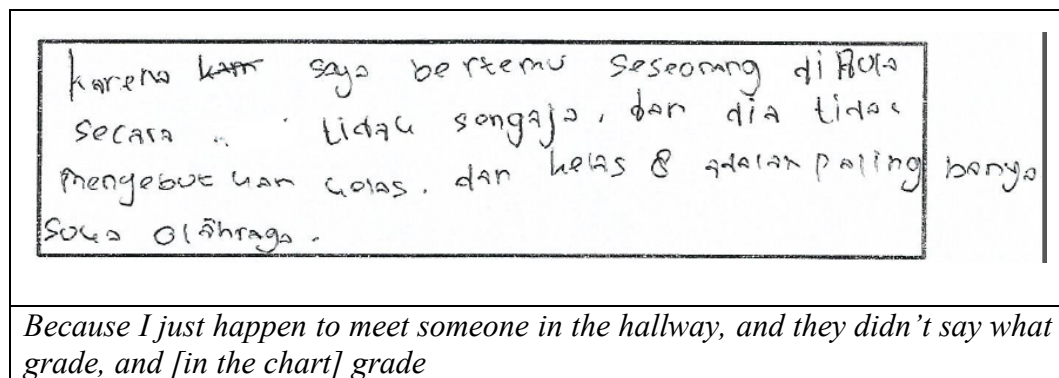 karena kam saya bertemu seseorang di Aula
secara tidak sengaja, dan dia tidak
mengebutkan kelas. dan kelas 8 adalah paling banya
suka olahraga.
Because I just happen to meet someone in the hallway, and they didn't say what
grade, and [in the chart] grade